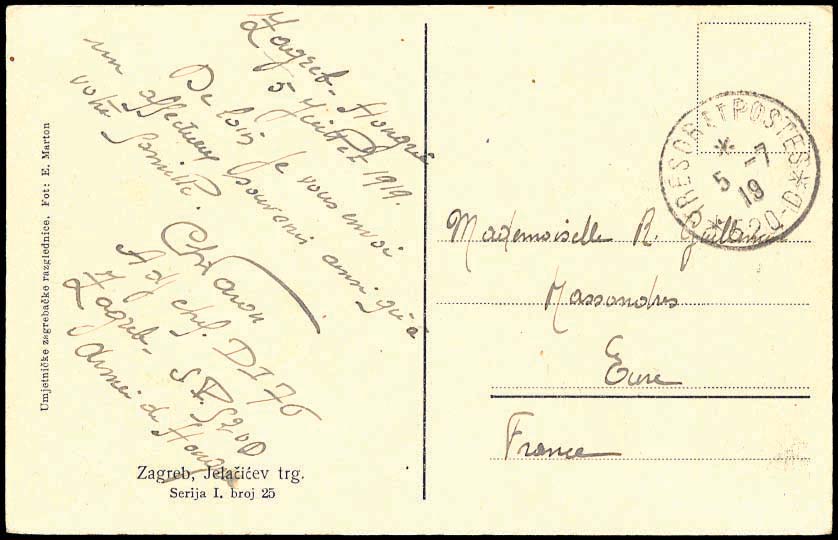 Zagreb - Hongrie
5 Juillet 1919.
De loin je vous envoi
un affectueux souvenir ainsi qu'à
votre famille.
Adj chef. D I 76
Zagreb - S P. 520 D
Armée de Hongrie
Umjetničke zagrebačke razglednice. Fot: E. Marton
Zagreb, Jelačićev trg.
Serija I. broj 25
TRESOR ET POSTES
* 5 -7
19
* 520-D *
Mademoiselle R.
Eure
France